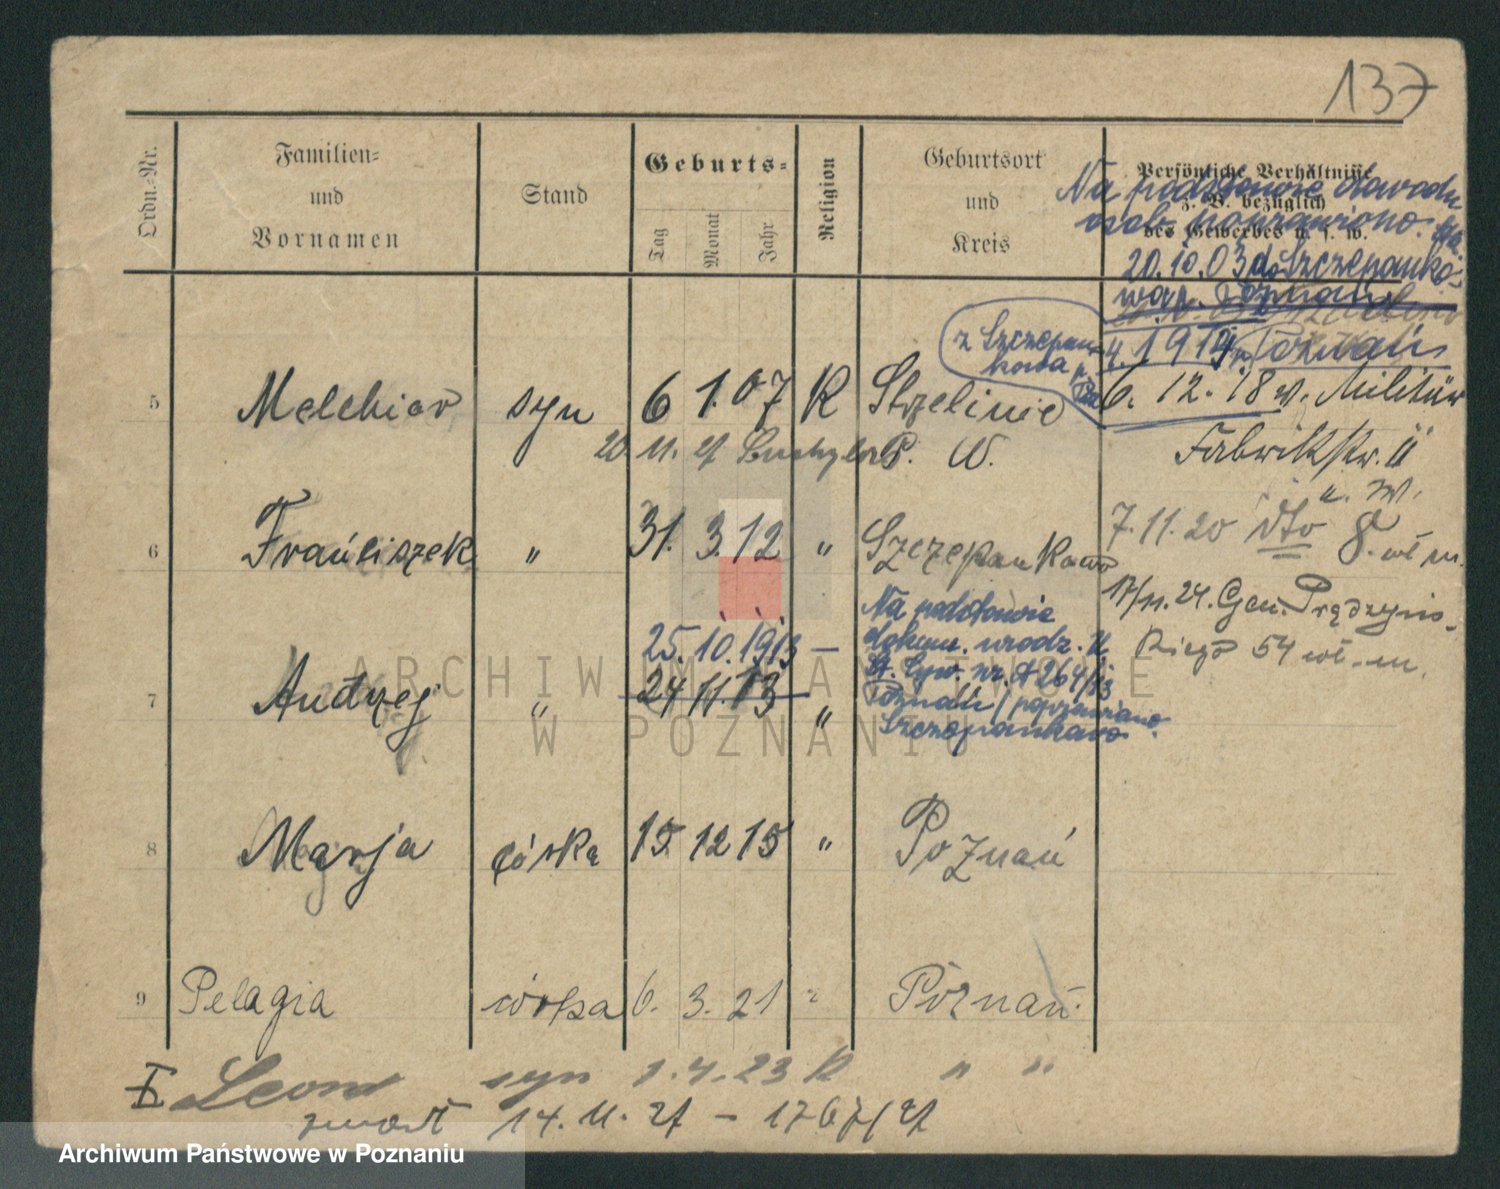 137
Ordn.-Nr.
Familien-
und
Vornamen
Stand
Geburts-
Tag
Monat
Jahr
Religion
Geburtsort
und
Kreis
Persönliche Verhältnisse
z. B. bezüglich
des Gewerbes u. s. w.
Na podstawie dowodu
osob. poprawiono.
20.10.03 do Szczepanko-
wa p. Poznań
z Szczepan-
kowa p.
4. 1914 Poznań
5 Melchior syn 6 1. 07 R Strzelinie
6. 12. 18 v. Militär
11. P. W.
Fabrikstr. 11
u. W.
6 Franciszek " 31. 3. 12 " Szczepankowo
7.11.20 dto 8. wł m.
17/11. 24. Gen. Prądzyńs-
kiego 54 wł. m.
Na podstawie
dokum. urodz. U.
St. Cyw. nr. 264/13
Poznań / poprawiono
Szczepankowo
25. 10. 1913 —
7 Andrzej " 24 11. 13 "
8 Marja córka 15. 12 15 " Poznań
9 Pelagia córka 6. 3. 21 " Poznań.
X Leon syn 1. 4. 23 R " "
zmarł 14. 11. 27 – 1767/27
ARCHIWUM PAŃSTWOWE
W POZNANIU
Archiwum Państwowe w Poznaniu